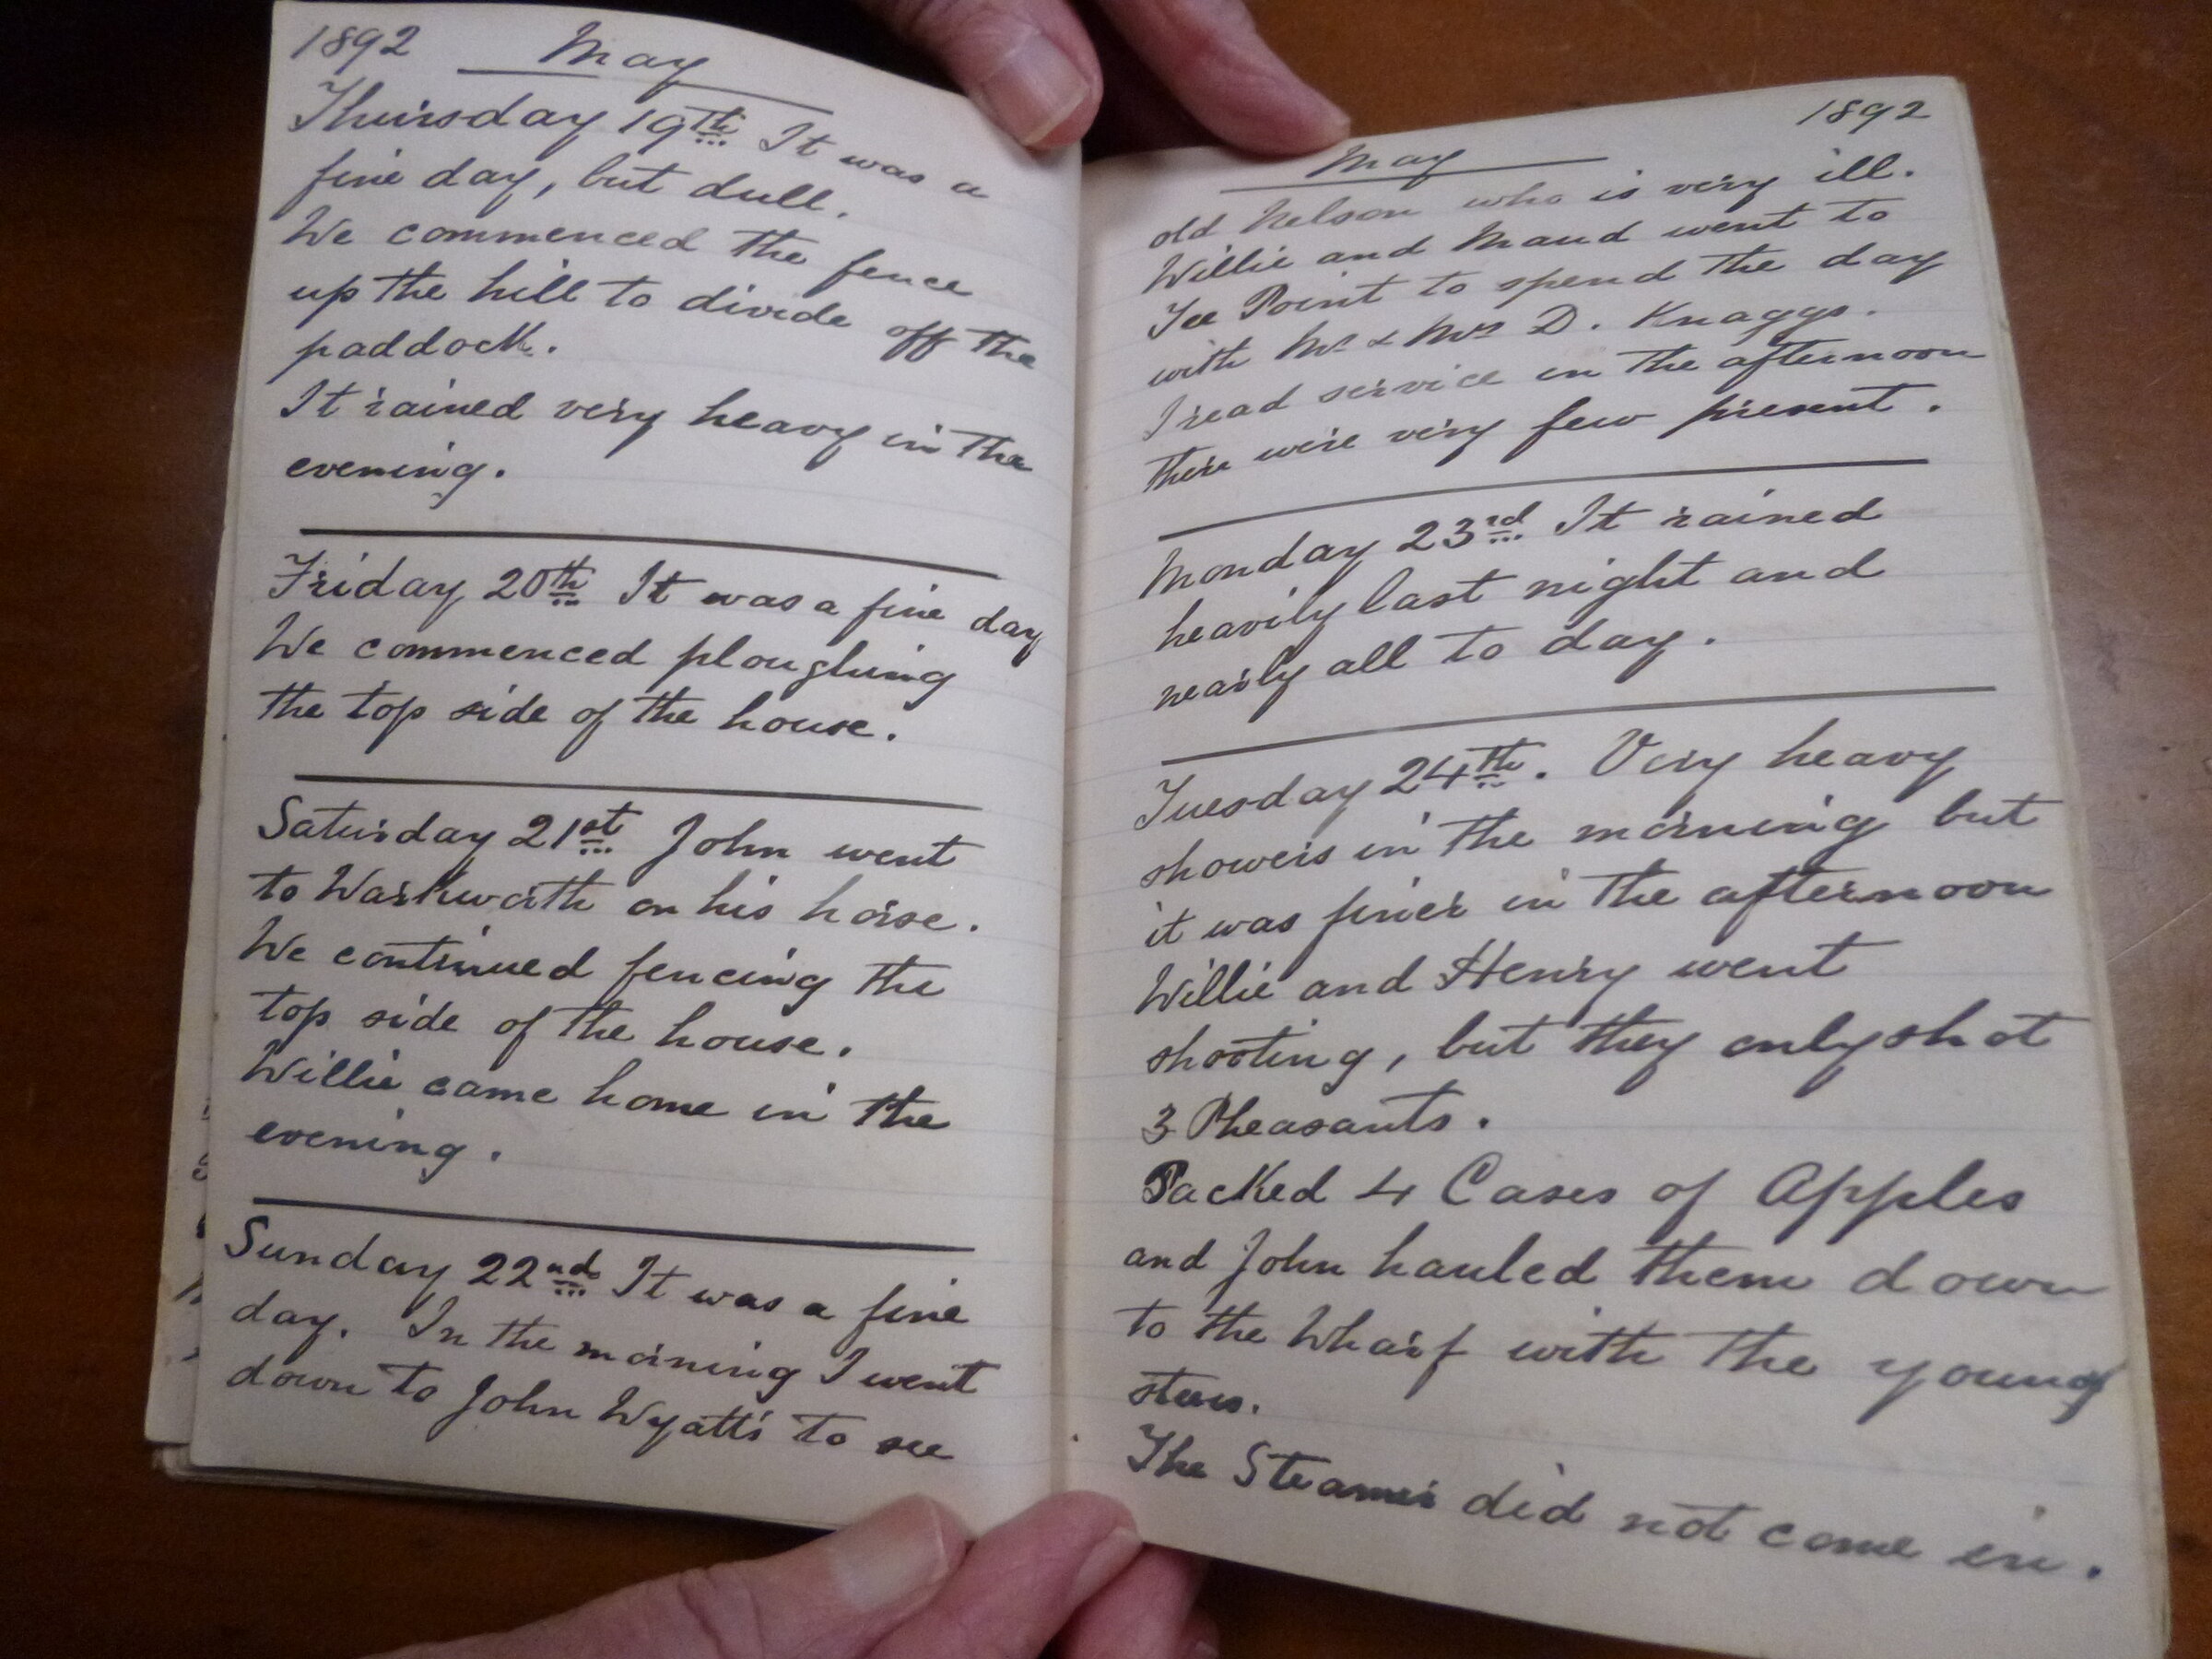 1892 May
Thursday 19th It was a
fine day, but dull.
We commenced the fence
up the hill to divide off the
paddock.
It rained very heavy in the
evening.
Friday 20th It was a fine day
We commenced ploughing
the top side of the house.
Saturday 21st John went
to Warkworth on his horse.
We continued fencing the
top side of the house.
Willie came home in the
evening.
Sunday 22nd It was a fine
day. In the morning I went
down to John Wyatt's to see
1892
May
old Nelson who is very ill.
Willie and Maud went to
Tee Point to spend the day
with Mr & Mrs D. Knaggs.
I read service in the afternoon
there were very few present.
Monday 23rd It rained
heavily last night and
nearly all to day.
Tuesday 24th. Very heavy
showers in the morning but
it was finer in the afternoon
Willie and Henry went
shooting, but they only shot
3 Pheasants.
Packed 4 Cases of Apples
and John hauled them down
to the Wharf with the young
steers.
The Steamer did not come in.